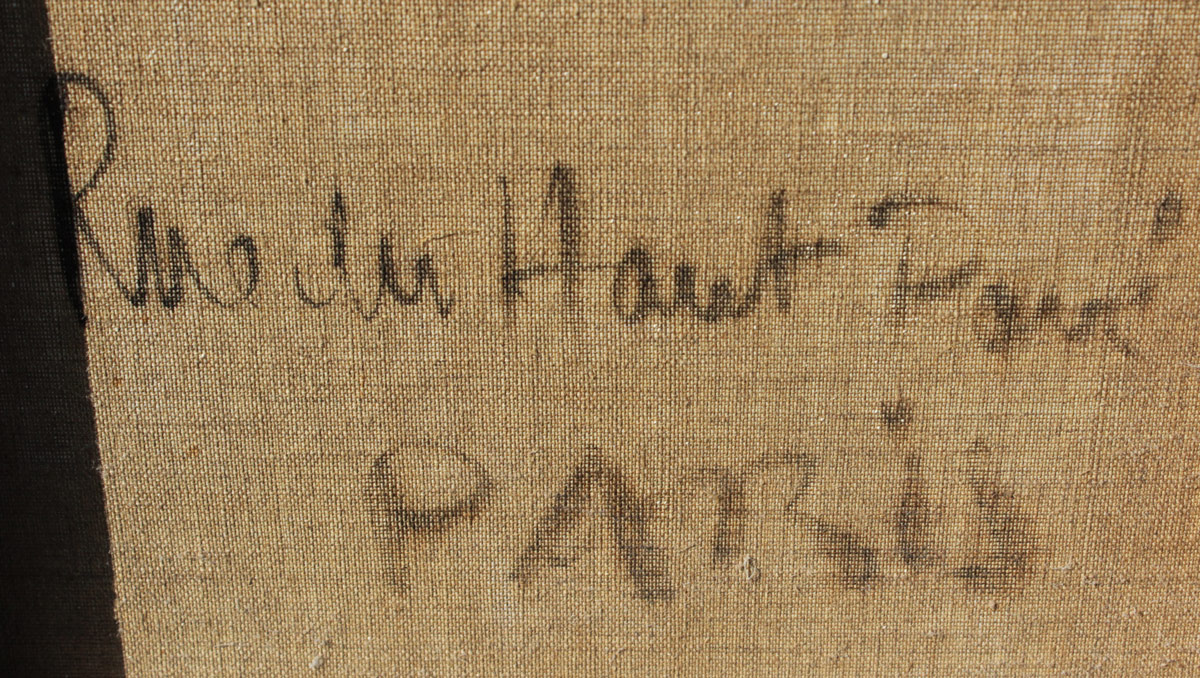 Rue du Haut Pavé
PARIS